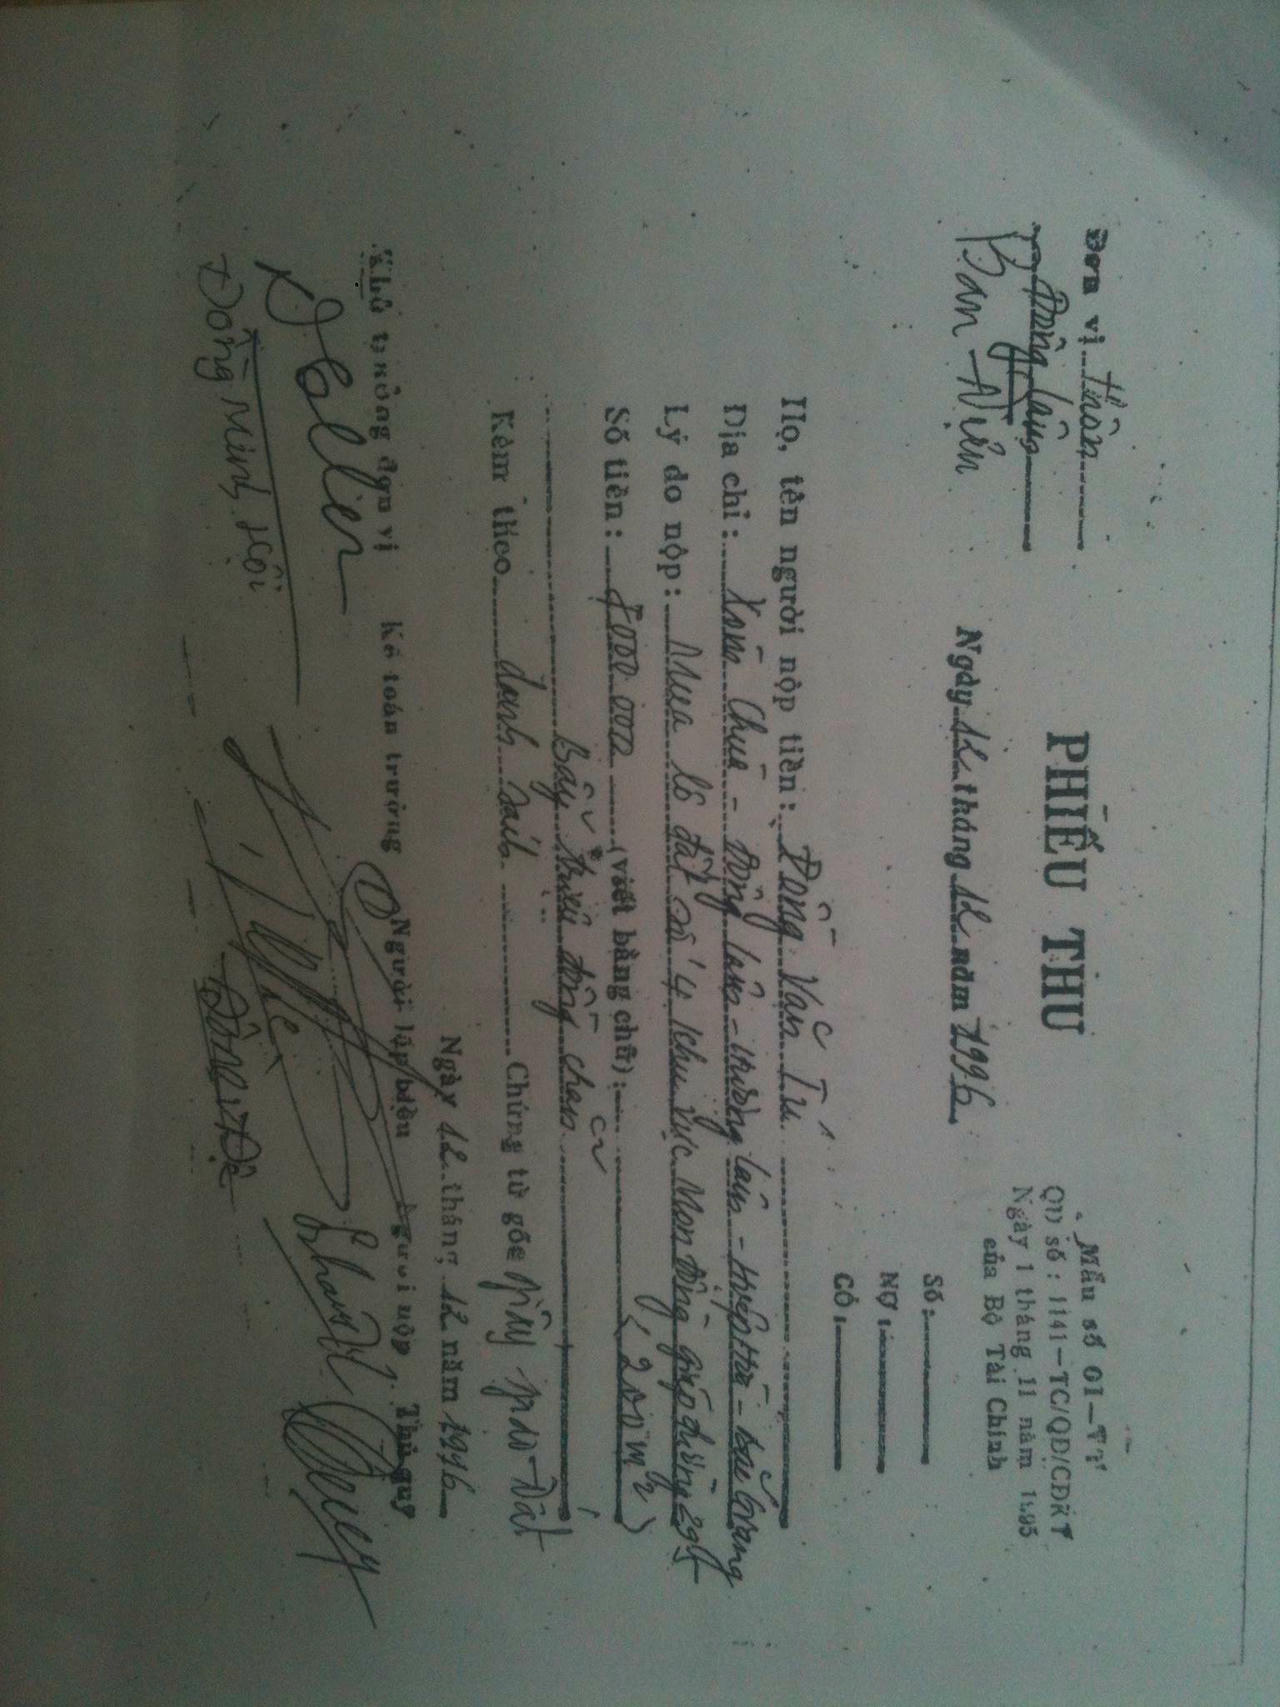 Đơn vị thôn
Đông Lâm
Ban
Mẫu số 01-TT
QĐ số : 1141-TC/QĐ/CĐKT
Ngày 1 tháng 11 năm 1995
của Bộ Tài Chính
PHIẾU THU
Ngày 12 tháng 12 năm 1996
Số:
NỢ:
CÓ:
Họ, tên người nộp tiền: Đồng Văn Tú
Địa chỉ: Xóm Chùa - Đông Lâm - Hương Lâm - Hiệp Hòa - Bắc Giang
Lý do nộp: Mua lô đất số 4 khu vực Mon Đồng giáp đường 295
Số tiền: 7000 000 (viết bằng chữ): (200m2)
Bảy triệu đồng chẵn
Kèm theo danh sách Chứng từ gốc Mua Đất
Ngày 12 tháng 12 năm 1996
Thủ trưởng đơn vị Kế toán trưởng Người lập biểu Người nộp Thủ quỹ
Đồng Minh Hội